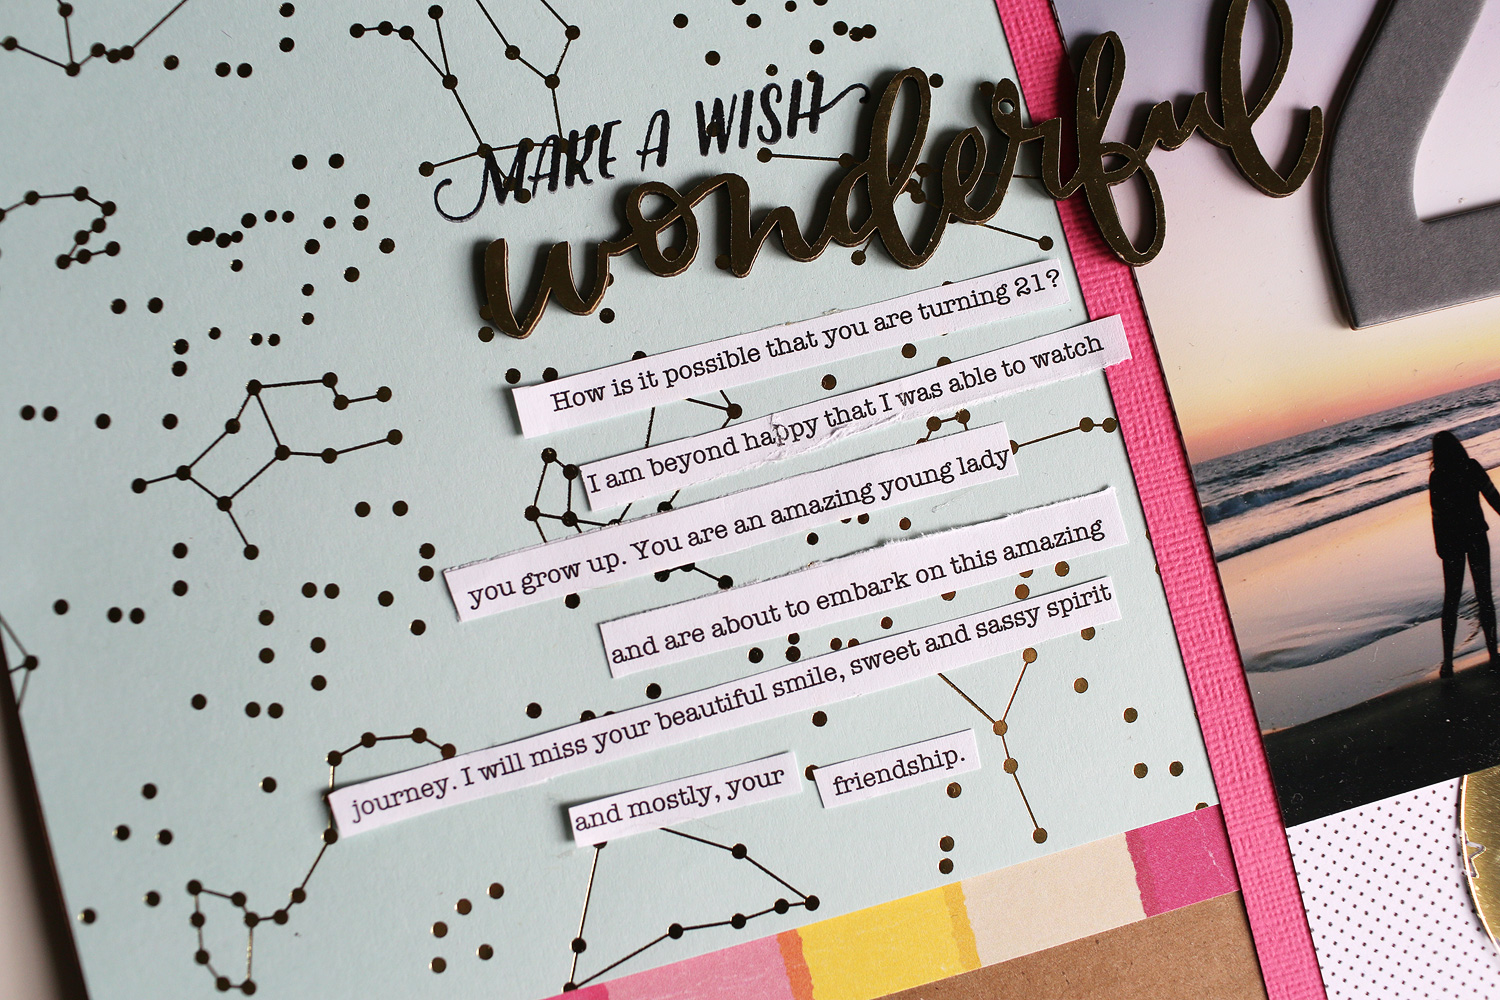 MAKE A WISH
wonderful
2
How is it possible that you are turning 21?
I am beyond happy that I was able to watch
you grow up. You are an amazing young lady
and are about to embark on this amazing
journey. I will miss your beautiful smile, sweet and sassy spirit
and mostly, your friendship.